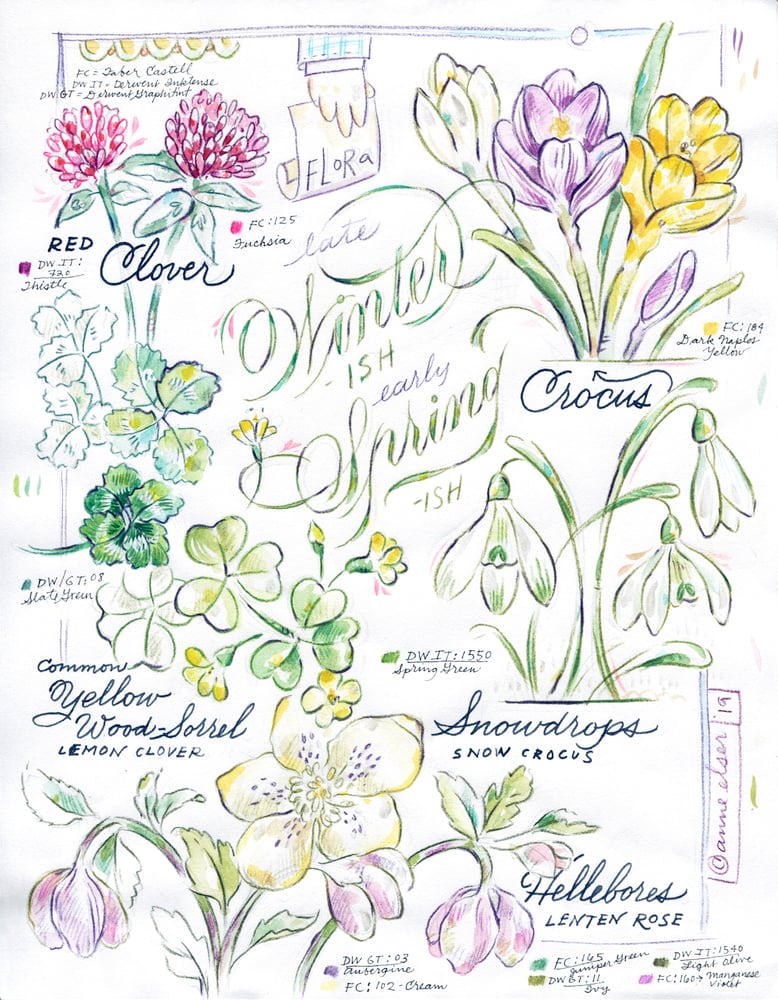 FC = Faber Castell
DW IT = Derwent Inktense
DW GT = Derwent Graphitint
FLORa
FC:125
Fuchsia
RED
Clover
DW IT:
720
Thistle
late
Winter
-ISH
early
Spring
-ISH
FC:184
Dark Naples
Yellow
Crocus
DW/GT:08
Slate Green
DW IT:1550
Spring Green
Common
Yellow
Wood-Sorrel
LEMON CLOVER
Snowdrops
SNOW CROCUS
©anne elser '19
Hellebores
LENTEN ROSE
DW GT:03
aubergine
FC:102-Cream
FC:165
Juniper Green
DW GT:11
Ivy
DW IT:1540
Light Olive
FC:160→Manganese
Violet